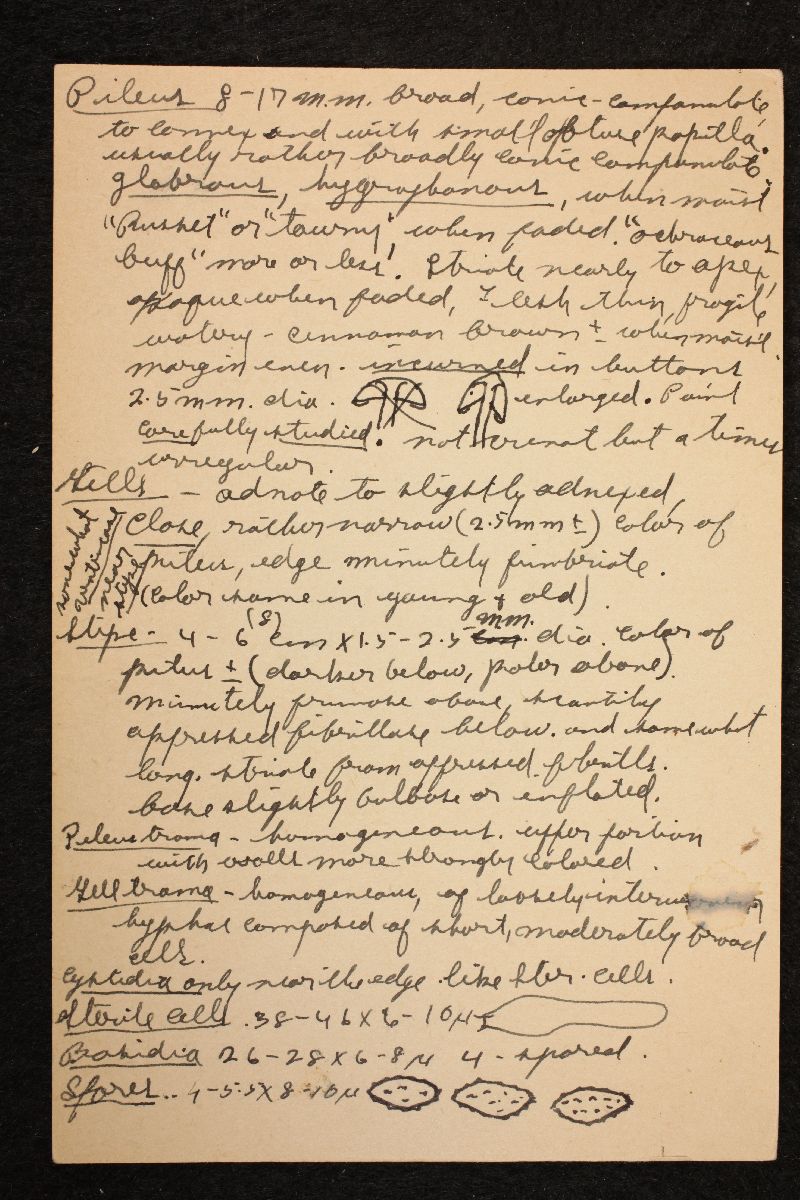 Pileus 8-17 m.m. broad, conic-campanulate,
to convex and with small obtuse papilla.
usually rather broadly conic campanulate.
glabrous, hygrophanous, when moist
"Russet" or "tawny" when faded. "ochraceous
buff" more or less. Striate nearly to apex,
opaque when faded, Flesh thin, fragile
watery - cinnamon brown ± when moist.
margin even. incurved in buttons
2.5 m m. dia. enlarged. Point
carefully studied. not crenat but a times
irregular.
Gills - adnate to slightly adnexed,
close, rather narrow (2.5 mm ±) color of
pileus, edge minutely fimbriate.
(color same in young + old).
somewhat
ventricose
near
stipe
Stipe - 4-6 (8) cm X 1.5-2.5 mm. dia. color of
pileus ± (darker below, paler above).
minutely pruinose above, scantily
appressed fibrillose below. and somewhat
long. striate from appressed fibrills.
base slightly bulbose or inflated.
Pileus trama - homogeneous. upper portion
with walls more strongly colored.
Gill trama - homogeneous, of loosely
hyphae composed of short, moderately broad
cells.
Cystidia only near the edge like ster. cells.
Sterile cells. 38-46 X 6-10 µ
Basidia 26-28 X 6-8 µ 4-spored.
Spores.. 4-5.5 X 8-10 µ